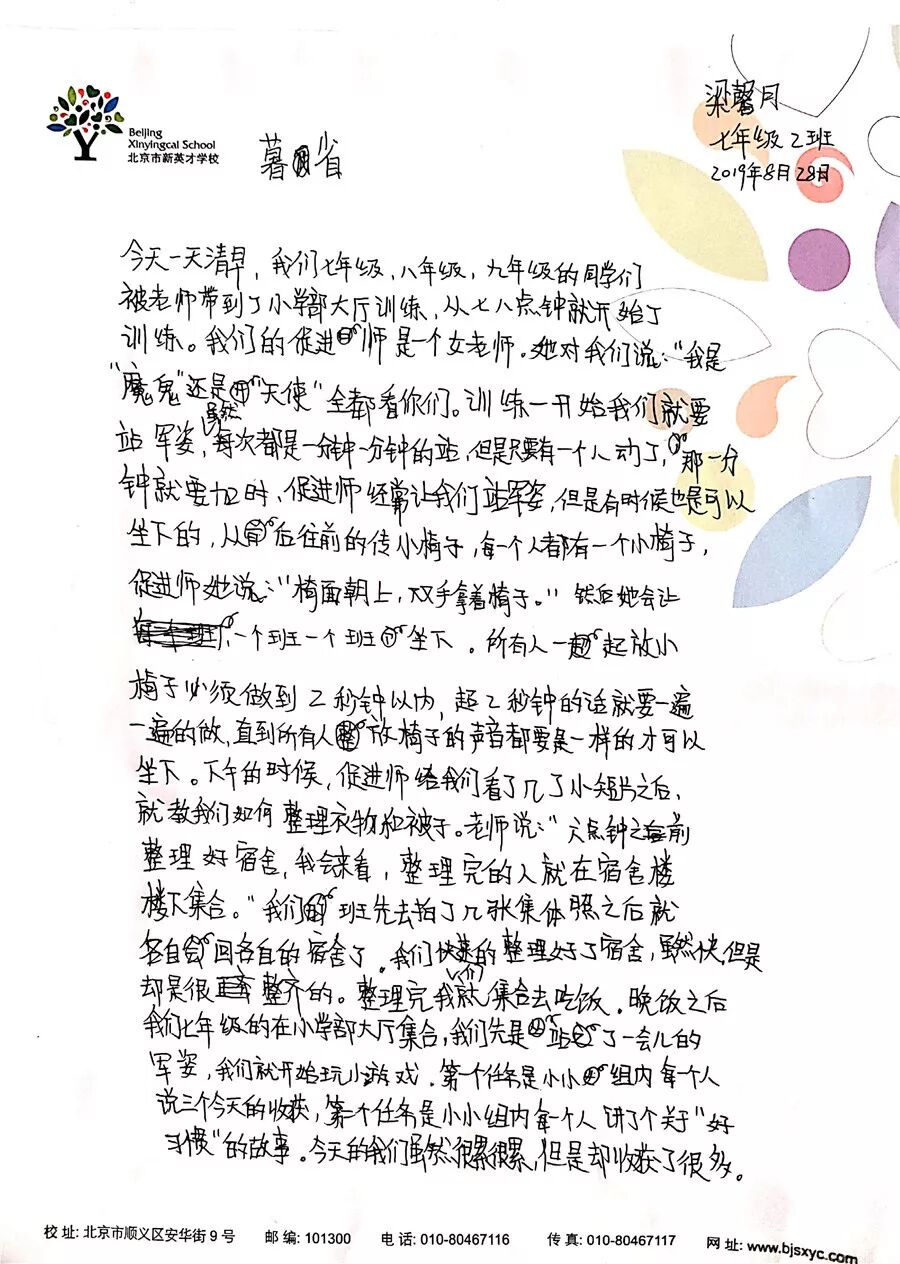 Beijing
Xinyingcai School
北京市新英才学校
暮省
梁馨月
七年级2班
2019年8月28日
今天一天清早，我们七年级，八年级，九年级的同学们
被老师带到了小学部大厅训练，从七八点钟就开始了
训练。我们的促进师是一个女老师。她对我们说："我是
"魔鬼"还是"天使"全都看你们。训练一开始我们就要
站军姿，虽然每次都是一分钟一分钟的站，但是只要有一个人动了，那一分
钟就要加时，促进师经常让我们站军姿，但是有时候也是可以
坐下的，从后往前的传小椅子，每一个人都有一个小椅子，
促进师她说："椅面朝上，双手拿着椅子。"然后她会让
一个班一个班坐下。所有人一起放小
椅子必须做到2秒钟以内，超2秒钟的话就要一遍
一遍的做，直到所有人放椅子的声音都要是一样的才可以
坐下。下午的时候，促进师给我们看了几个小短片之后，
就教我们如何整理衣物和被子。老师说："六点钟之前
整理好宿舍，我会来看，整理完的人就在宿舍楼
楼下集合。"我们班先去拍了几张集体照之后就
各自回各自的宿舍了。我们快速的整理好了宿舍，虽然快，但是
却是很整齐的。整理完我们就集合去吃饭。晚饭之后
我们七年级的在小学部大厅集合，我们先是站了一会儿的
军姿，我们就开始玩小游戏。第一个任务是小小组内每个人
说三个今天的收获，第二个任务是小小组内每个人讲了个关于"好
习惯"的故事。今天的我们虽然很累很累，但是却收获了很多。
校址: 北京市顺义区安华街9号 邮编: 101300 电话: 010-80467116 传真: 010-80467117 网址: www.bjsxyc.com